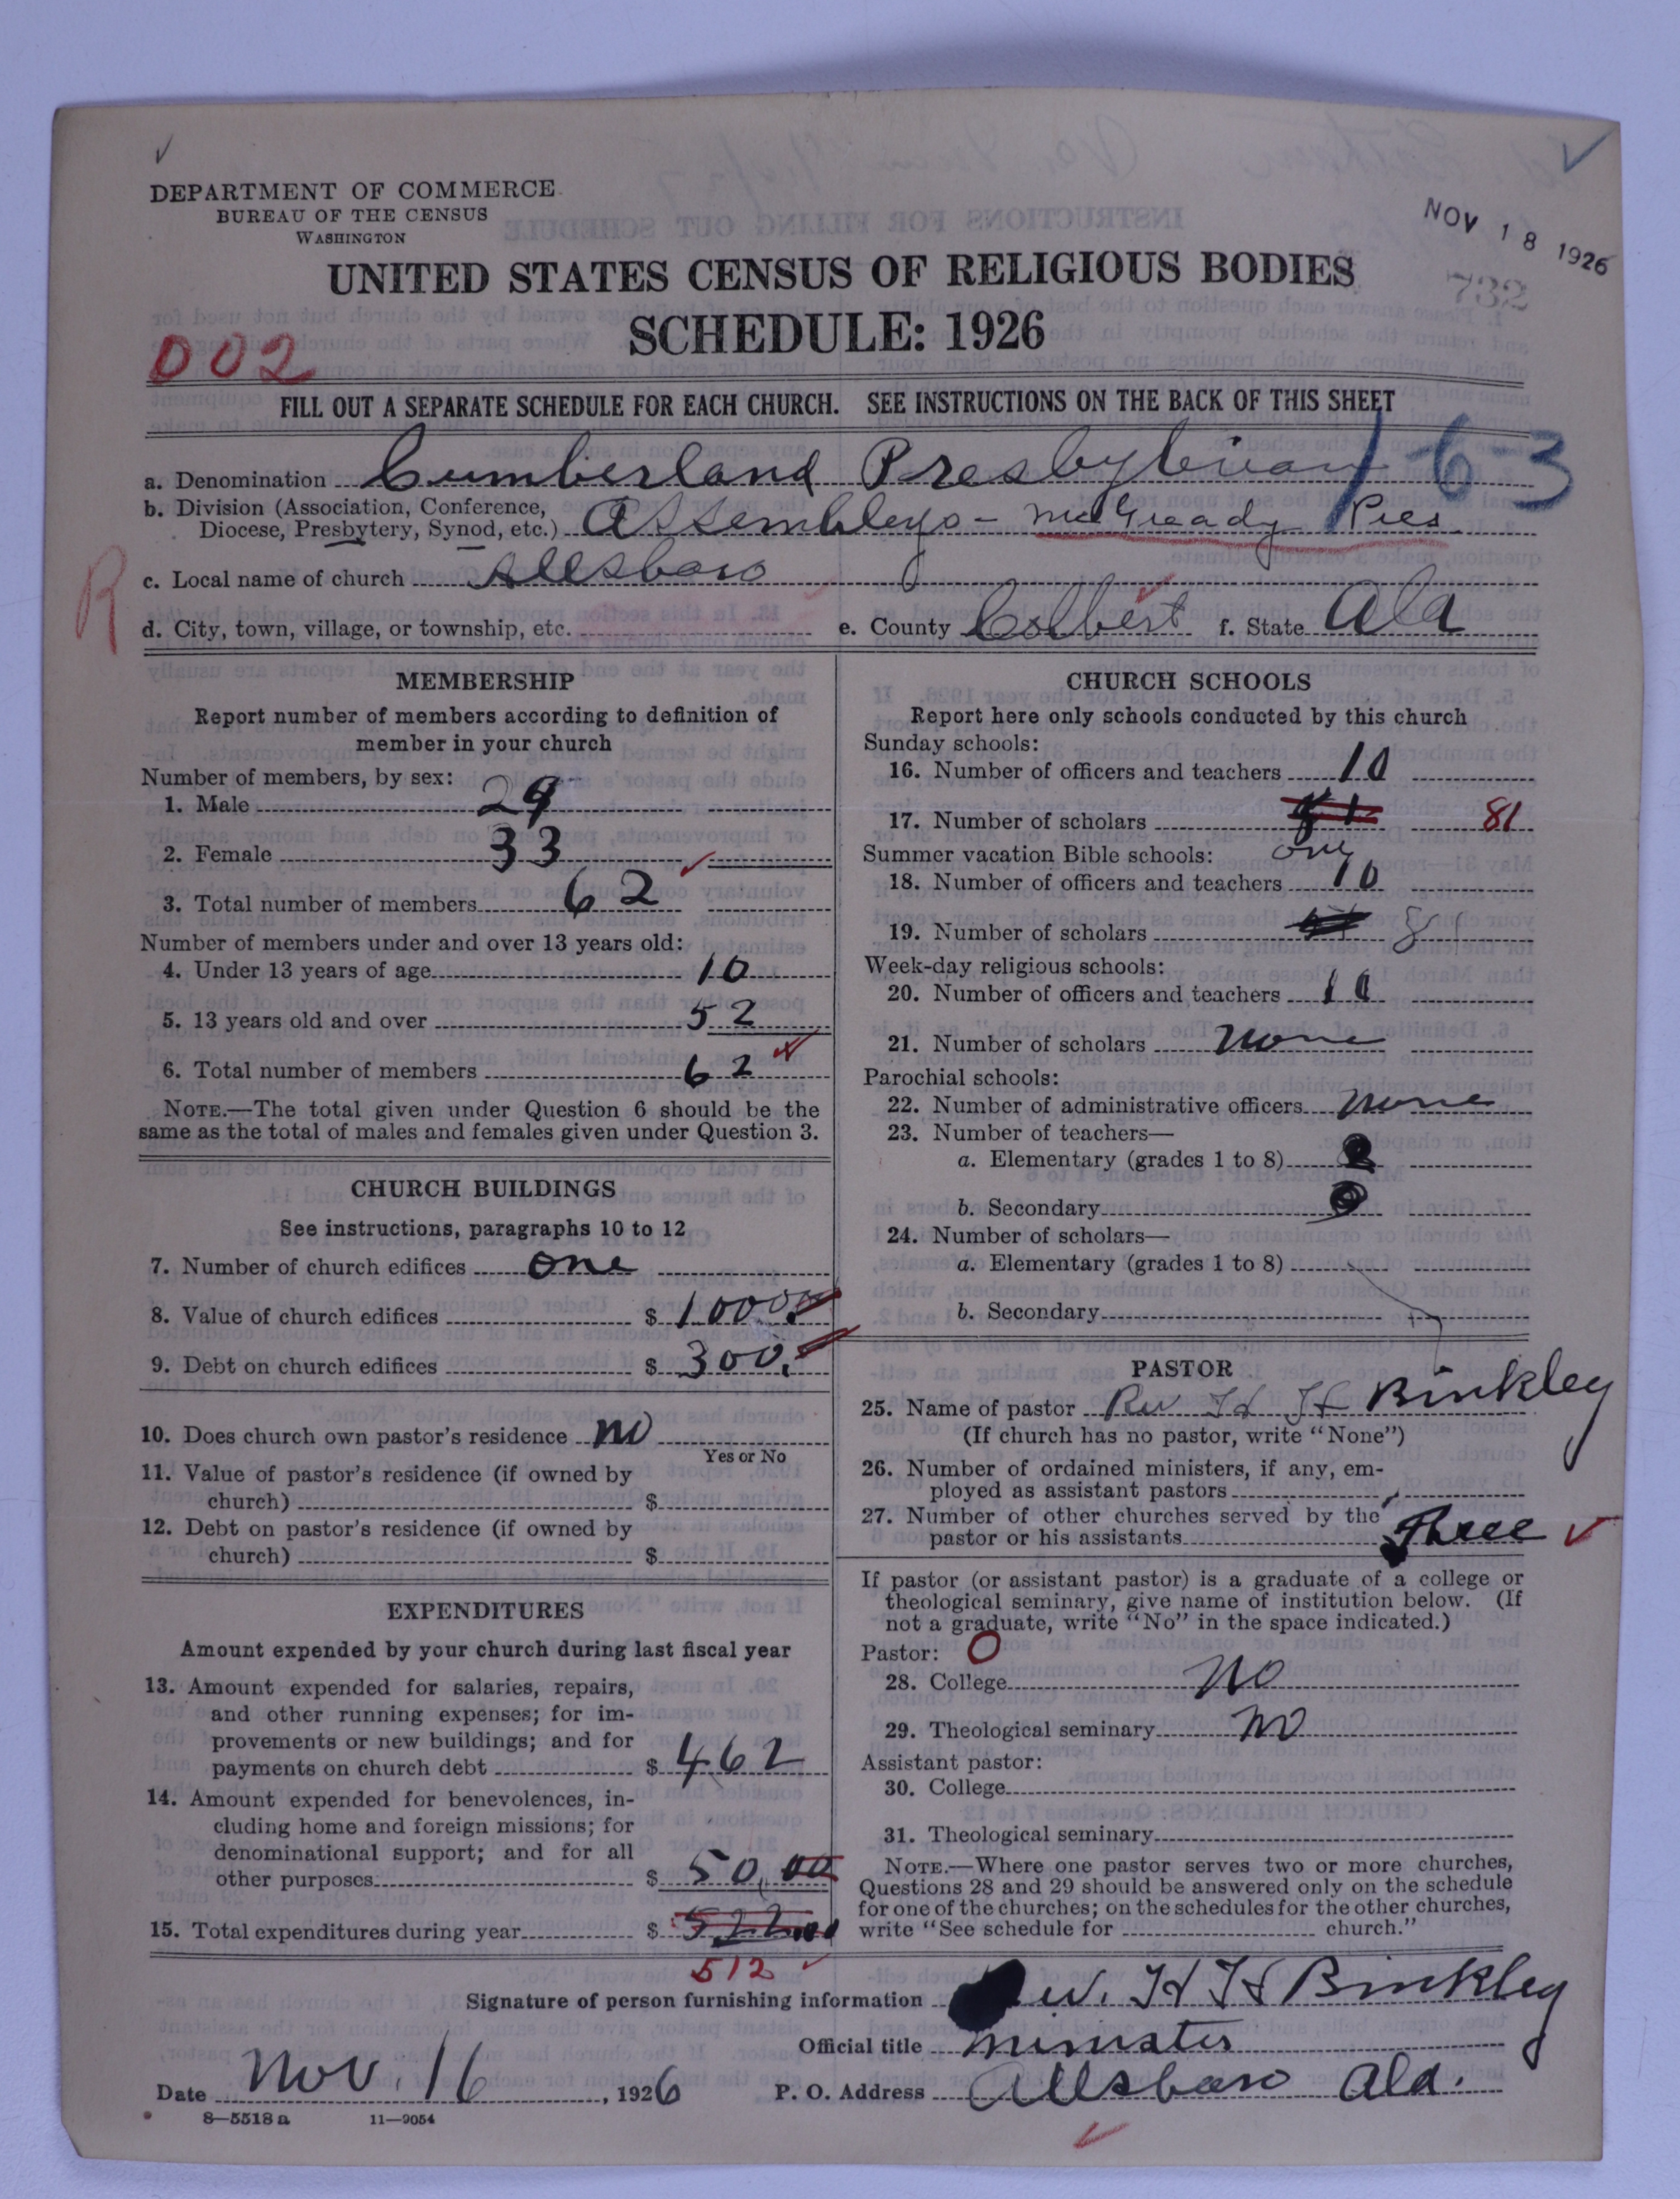 DEPARTMENT OF COMMERCE
BUREAU OF THE CENSUS
WASHINGTON
NOV 18 1926
732
UNITED STATES CENSUS OF RELIGIOUS BODIES
SCHEDULE: 1926
002
FILL OUT A SEPARATE SCHEDULE FOR EACH CHURCH. SEE INSTRUCTIONS ON THE BACK OF THIS SHEET
1-63
a. Denomination Cumberland Presbyterian
b. Division (Association, Conference,
Diocese, Presbytery, Synod, etc.) Assembleys - McGready Pres
R
c. Local name of church Allsboro
d. City, town, village, or township, etc. e. County Colbert f. State Ala
MEMBERSHIP
Report number of members according to definition of
member in your church
Number of members, by sex:
1. Male 29
2. Female 33
3. Total number of members 62
Number of members under and over 13 years old:
4. Under 13 years of age 10
5. 13 years old and over 52
6. Total number of members 62
NOTE.—The total given under Question 6 should be the
same as the total of males and females given under Question 3.
CHURCH BUILDINGS
See instructions, paragraphs 10 to 12
7. Number of church edifices one
8. Value of church edifices $ 1000
9. Debt on church edifices $ 300.
10. Does church own pastor's residence no
Yes or No
11. Value of pastor's residence (if owned by
church) $
12. Debt on pastor's residence (if owned by
church) $
EXPENDITURES
Amount expended by your church during last fiscal year
13. Amount expended for salaries, repairs,
and other running expenses; for im-
provements or new buildings; and for
payments on church debt $ 462
14. Amount expended for benevolences, in-
cluding home and foreign missions; for
denominational support; and for all
other purposes $ 50.00
15. Total expenditures during year $ 522.00
512
CHURCH SCHOOLS
Report here only schools conducted by this church
Sunday schools:
16. Number of officers and teachers 10
17. Number of scholars 81
Summer vacation Bible schools: one
18. Number of officers and teachers 10
19. Number of scholars 81
Week-day religious schools:
20. Number of officers and teachers 10
21. Number of scholars none
Parochial schools:
22. Number of administrative officers none
23. Number of teachers—
a. Elementary (grades 1 to 8)
b. Secondary
24. Number of scholars—
a. Elementary (grades 1 to 8)
b. Secondary
PASTOR
25. Name of pastor Rev H H Binkley
(If church has no pastor, write "None")
26. Number of ordained ministers, if any, em-
ployed as assistant pastors
27. Number of other churches served by the
pastor or his assistants Three
If pastor (or assistant pastor) is a graduate of a college or
theological seminary, give name of institution below. (If
not a graduate, write "No" in the space indicated.)
Pastor: O
28. College No
29. Theological seminary no
Assistant pastor:
30. College
31. Theological seminary
NOTE.—Where one pastor serves two or more churches,
Questions 28 and 29 should be answered only on the schedule
for one of the churches; on the schedules for the other churches,
write "See schedule for church."
Signature of person furnishing information Rev. H H Binkley
Official title minister
Date Nov. 16, 1926 P. O. Address Allsboro Ala.
8—5518a 11—9054